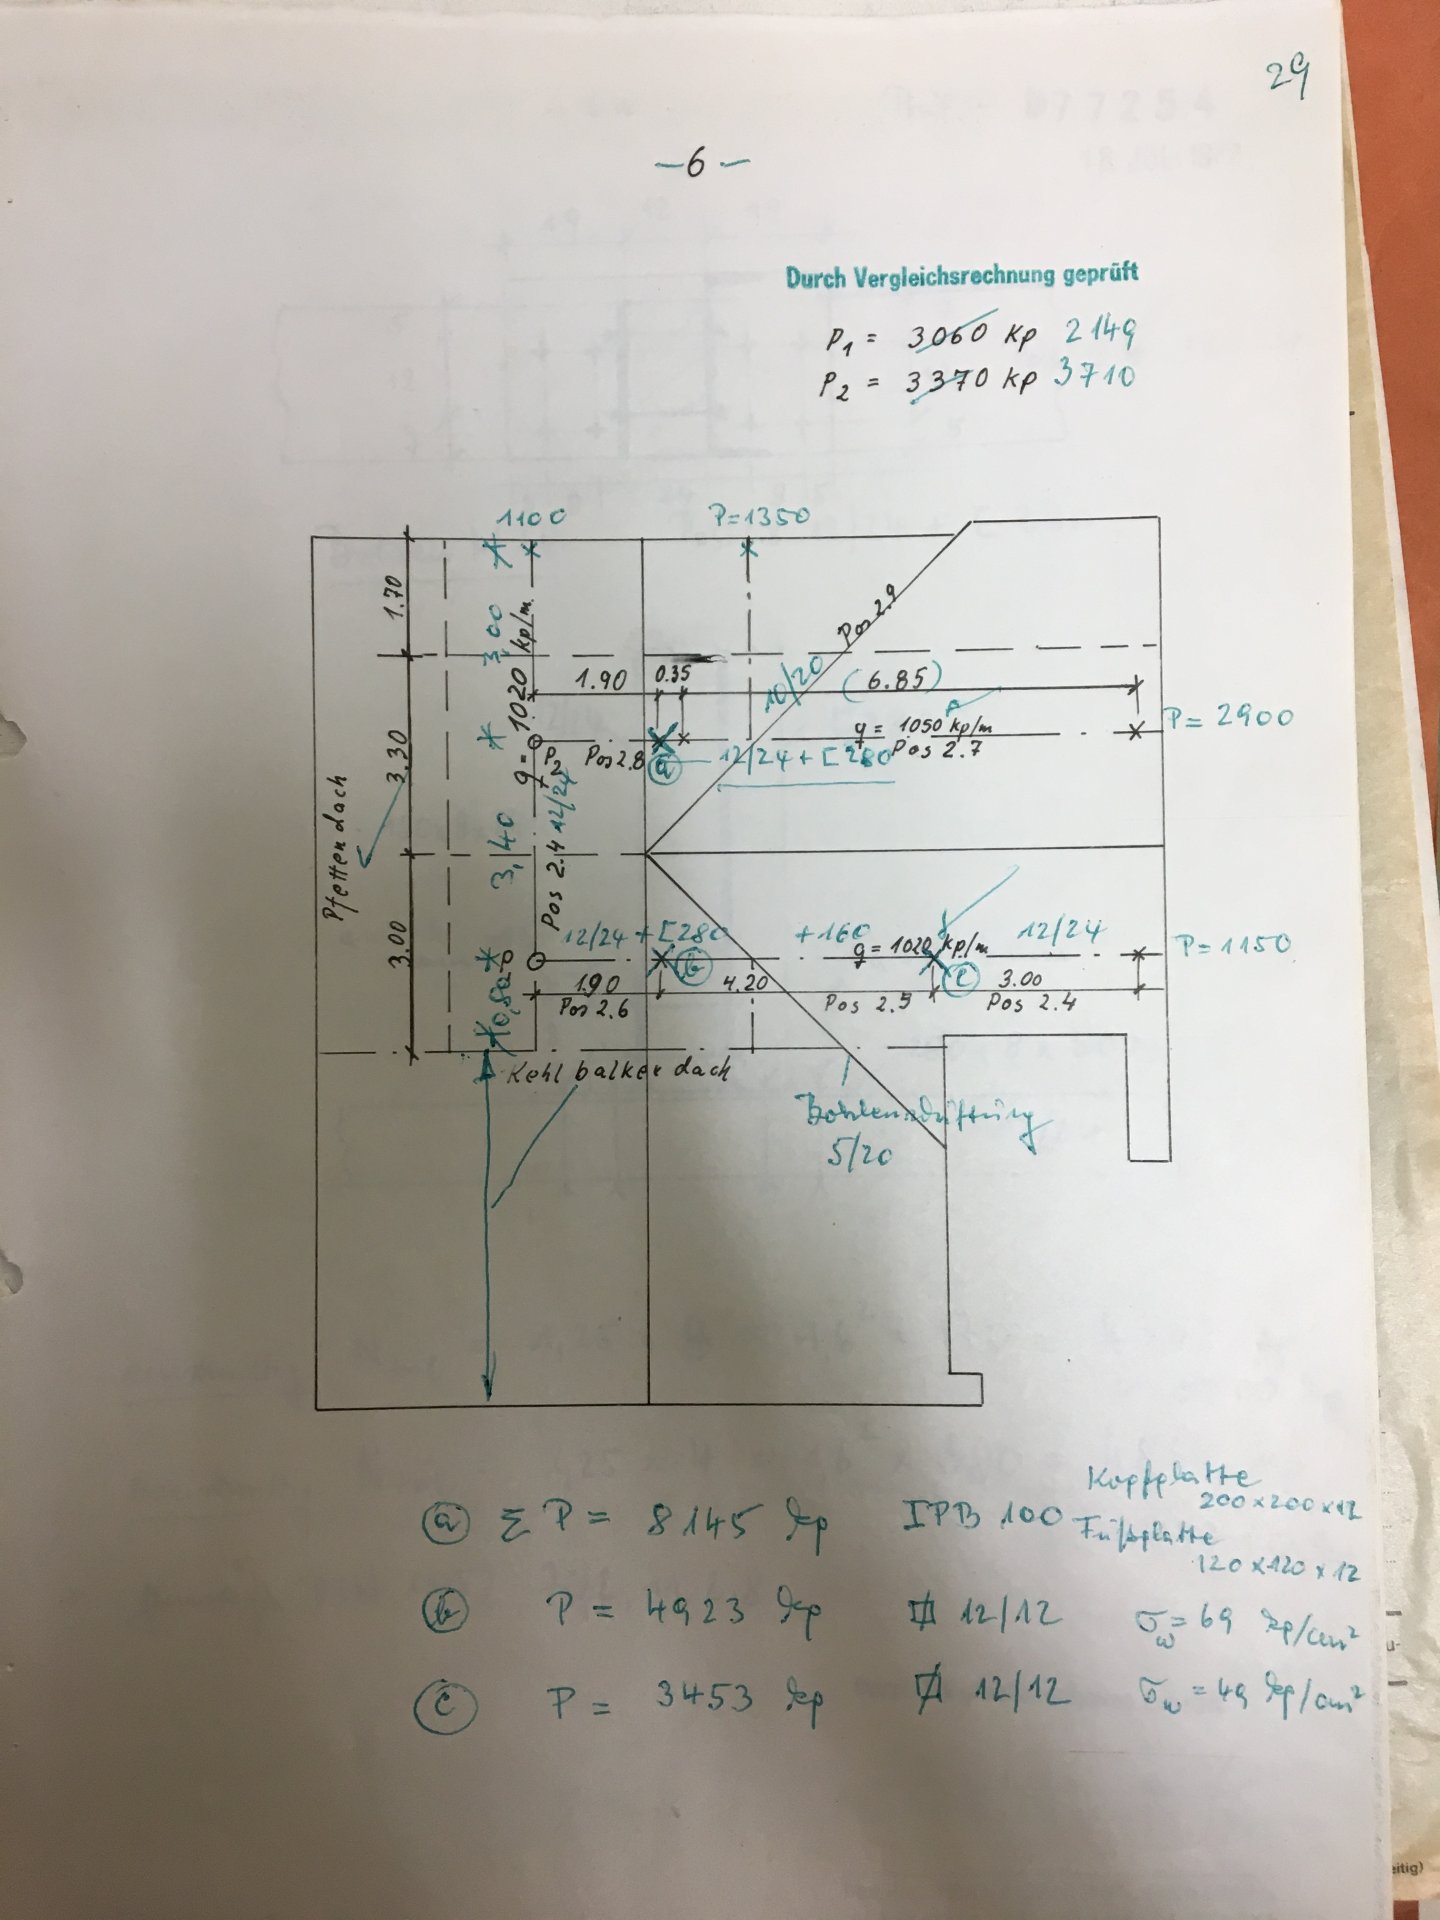 29
-6-
Durch Vergleichsrechnung geprüft
P1 = 3060 kp 2149
P2 = 3370 kp 3710
1100
P=1350
1.70
3,00
q = 1020 kp/m
Pos 2.9
10/20
1.90
0.35
(6.85)
P= 2900
q = 1050 kp/m
P2
Pos 2.8
Pos 2.7
a
12/24 + [280
3.30
Pfettendach
3,40
Pos 2.4 12/24
3.00
12/24 + [280
+160
q = 1020 kp/m
12/24
P=1150
b
c
1.90
4.20
3.00
0,80
Pos 2.6
Pos 2.5
Pos 2.4
Kehlbalkendach
5/20
Kopfplatte
200x200x12
a Σ P = 8145 kp IPB 100
Fußplatte
120x120x12
b P = 4923 kp 12/12 σw = 69 kp/cm²
c P = 3453 kp 12/12 σw = 49 kp/cm²
eitig)